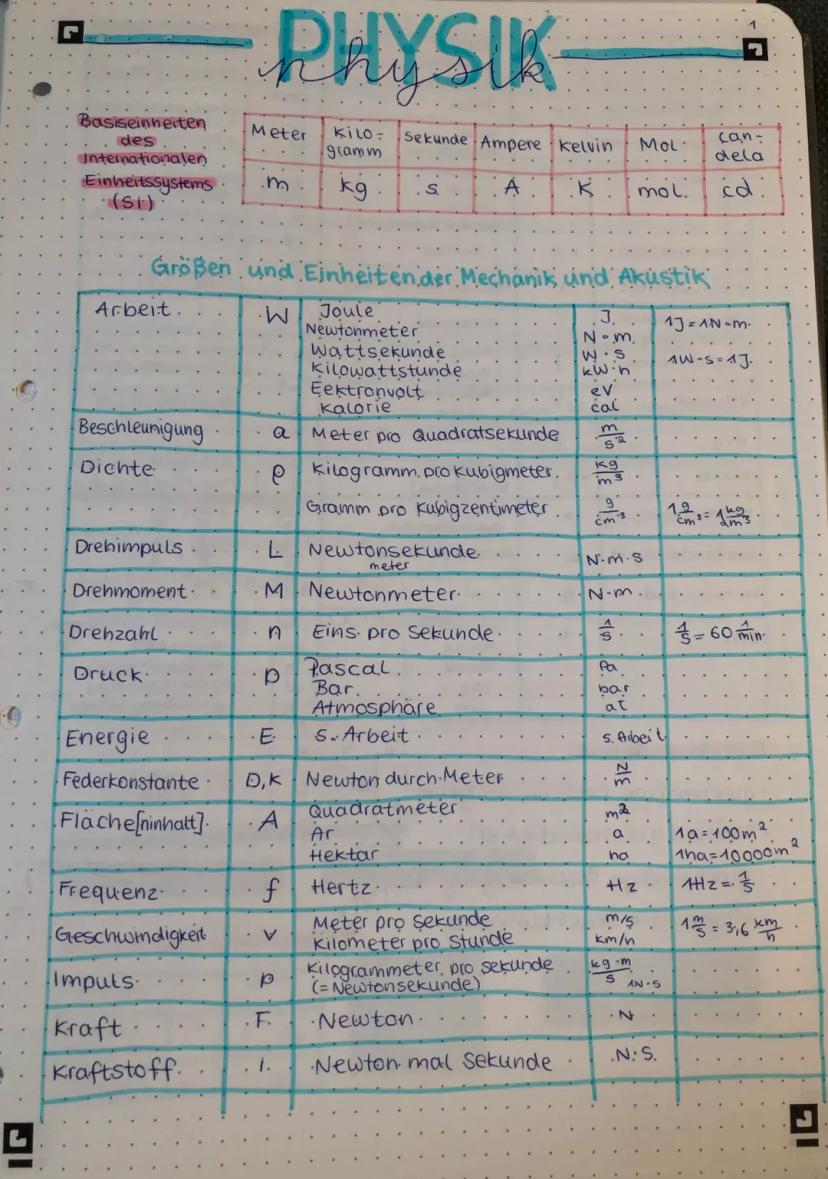 1
PHYSIK
physik
Basiseinheiten des Internationalen Einheitssystems (SI)
Meter Kilo-gramm Sekunde Ampere Kelvin Mol can-dela
m kg s A K mol cd
Größen und Einheiten der Mechanik und Akustik
Arbeit W Joule J 1J=1N·m
Newtonmeter N·m
Wattsekunde W·s 1W·s=1J
Kilowattstunde kW·h
Eektronvolt eV
Kalorie cal
Beschleunigung a Meter pro Quadratsekunde m/s²
Dichte ρ Kilogramm pro Kubigmeter kg/m³
Gramm pro Kubigzentimeter g/cm³ 1 g/cm³ = 1 kg/dm³
Drehimpuls L Newtonsekunde N·m·s
meter
Drehmoment M Newtonmeter N·m
Drehzahl n Eins pro Sekunde 1/s 1/s = 60 1/min
Druck p Pascal Pa
Bar bar
Atmosphäre at
Energie E s. Arbeit s. Arbeit
Federkonstante D,K Newton durch Meter N/m
Fläche[ninhalt] A Quadratmeter m²
Ar a 1a=100m²
Hektar ha 1ha=10000m²
Frequenz f Hertz Hz 1Hz = 1/s
Geschwindigkeit v Meter pro Sekunde m/s 1 m/s = 3,6 km/h
Kilometer pro Stunde km/h
Impuls p Kilogrammeter pro Sekunde kg·m/s
(=Newtonsekunde) 1N·s
Kraft F Newton N
Kraftstoff I Newton mal Sekunde N·S